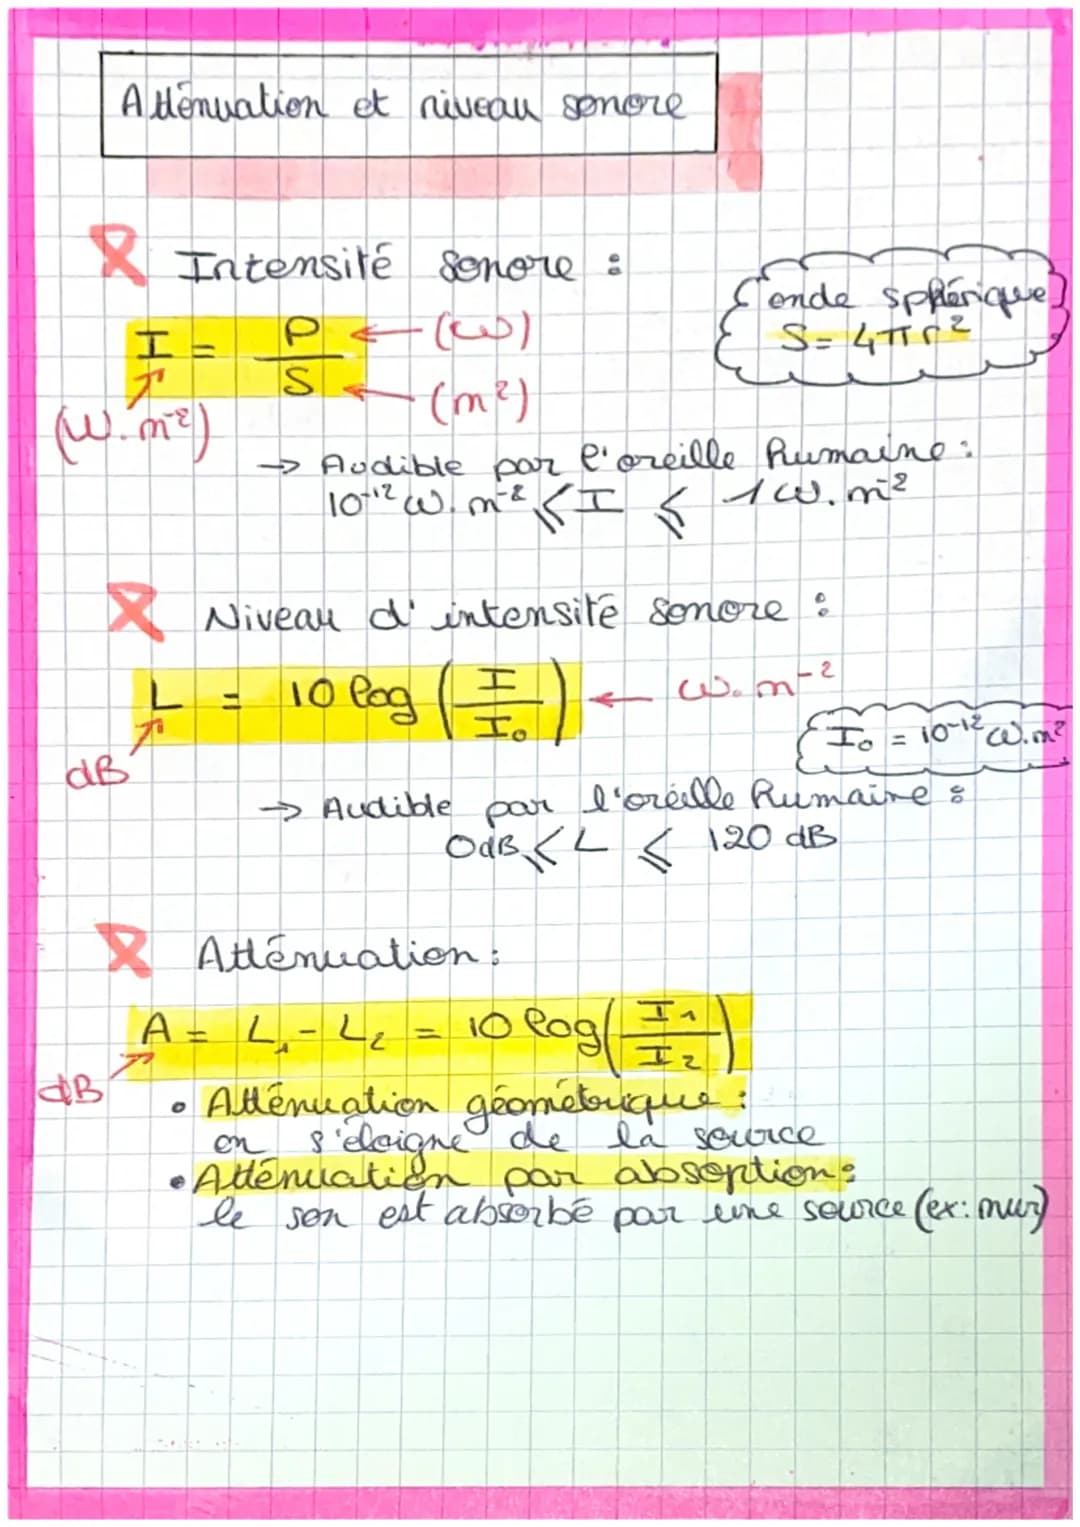 Atténuation et niveau sonore
Intensité sonore :
onde sphérique
S = 4πr²
I = P/S
(W)
(m²)
(W.m⁻²)
→ Audible par l'oreille humaine :
10⁻¹² W.m⁻² ⩽ I ⩽ 1 W.m⁻²
Niveau d'intensité sonore :
L = 10 log (I/I₀) ← W.m⁻²
dB
I₀ = 10⁻¹² W.m⁻²
→ Audible par l'oreille humaine :
0dB ⩽ L ⩽ 120 dB
Atténuation :
A = L₁ - L₂ = 10 log (I₁/I₂)
dB
• Atténuation géométrique :
on s'éloigne de la source
• Atténuation par absoption :
le son est absorbé par une source (ex: mur)